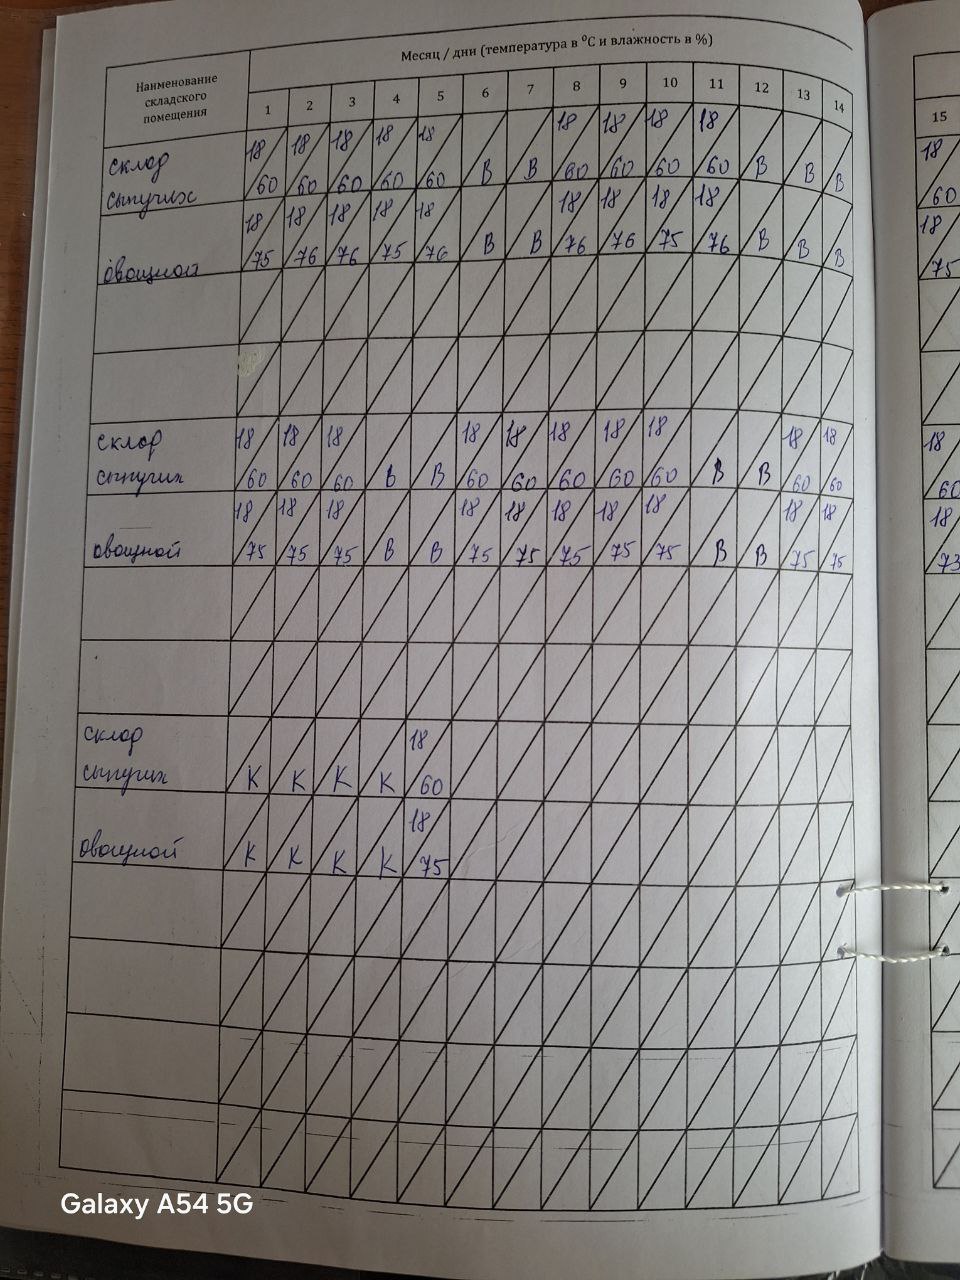 Месяц / дни (температура в ⁰С и влажность в %)
Наименование
складского
помещения
1 2 3 4 5 6 7 8 9 10 11 12 13 14 15
18 18 18 18 18 18 18 18 18 18
склад
сыпучих
60 60 60 60 60 В В 60 60 60 60 В В В 60
18 18 18 18 18 18 18 18 18 18
овощной 75 76 76 75 76 В В 76 76 75 76 В В В 75
склад 18 18 18 18 18 18 18 18 18 18 18
сыпучих 60 60 60 В В 60 60 60 60 60 В В 60 60 60
18 18 18 18 18 18 18 18 18 18 18
овощной 75 75 75 В В 75 75 75 75 75 В В 75 75 73
склад 18
сыпучих К К К К 60
18
овощной К К К К 75
Galaxy A54 5G